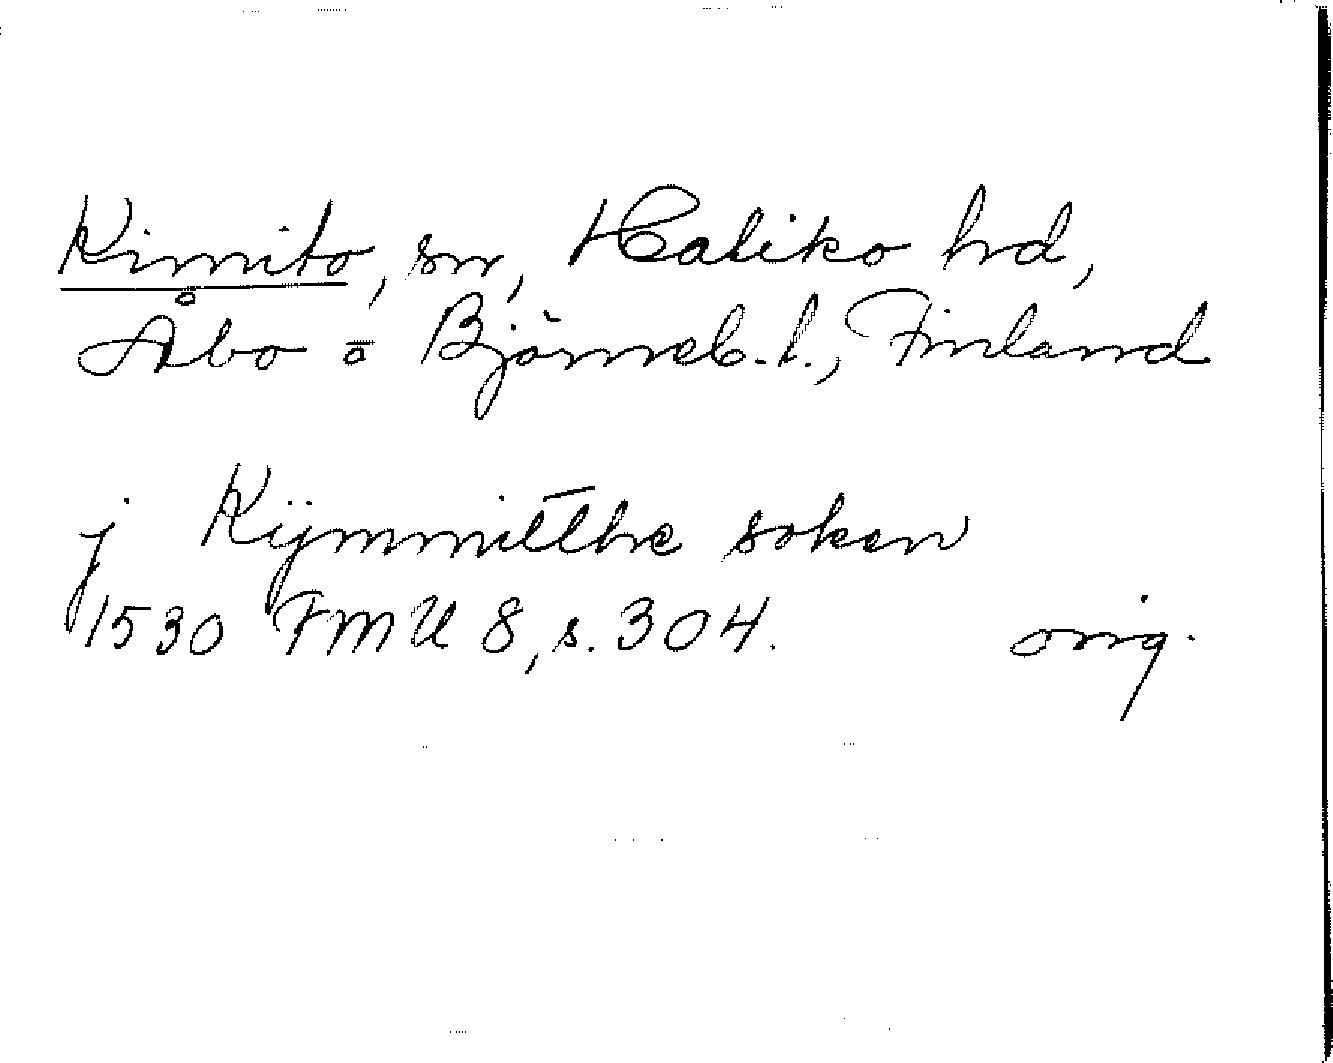 Kimito, sn, Haliko hd,
Åbo o Björneb. l., Finland
j Kÿmmitthe soken
1530 FMU 8, s. 304. orig.